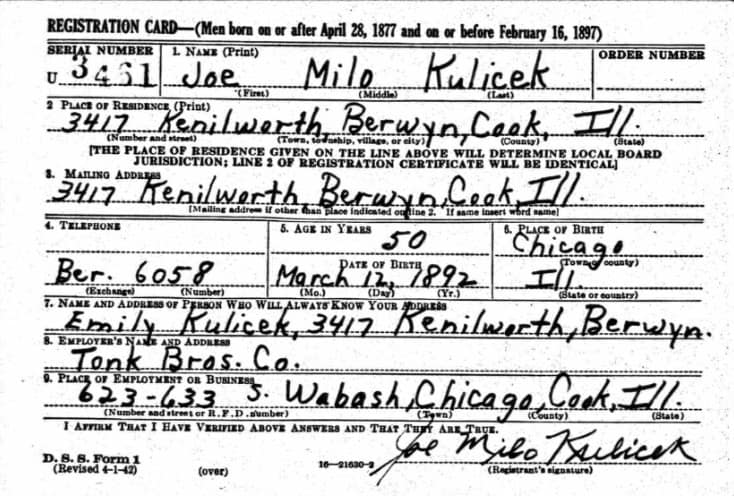 REGISTRATION CARD—(Men born on or after April 28, 1877 and on or before February 16, 1897)
SERIAL NUMBER 1. NAME (Print) ORDER NUMBER
U 3461 Joe Milo Kulicek
(First) (Middle) (Last)
2 PLACE OF RESIDENCE (Print)
3417 Kenilworth, Berwyn, Cook, Ill.
(Number and street) (Town, township, village, or city) (County) (State)
[THE PLACE OF RESIDENCE GIVEN ON THE LINE ABOVE WILL DETERMINE LOCAL BOARD
JURISDICTION; LINE 2 OF REGISTRATION CERTIFICATE WILL BE IDENTICAL]
3. MAILING ADDRESS
3417 Kenilworth, Berwyn, Cook, Ill.
[Mailing address if other than place indicated on line 2. If same insert word same]
4. TELEPHONE 5. AGE IN YEARS 6. PLACE OF BIRTH
50 Chicago
DATE OF BIRTH (Town or county)
Ber. 6058 March 12, 1892 Ill.
(Exchange) (Number) (Mo.) (Day) (Yr.) (State or country)
7. NAME AND ADDRESS OF PERSON WHO WILL ALWAYS KNOW YOUR ADDRESS
Emily Kulicek, 3417 Kenilworth, Berwyn.
8. EMPLOYER'S NAME AND ADDRESS
Tonk Bros. Co.
9. PLACE OF EMPLOYMENT OR BUSINESS
623-633 S. Wabash, Chicago, Cook, Ill.
(Number and street or R. F. D. number) (Town) (County) (State)
I AFFIRM THAT I HAVE VERIFIED ABOVE ANSWERS AND THAT THEY ARE TRUE.
Joe Milo Kulicek
D. S. S. Form 1
(Revised 4-1-42) (over) 16—21630-2 (Registrant's signature)